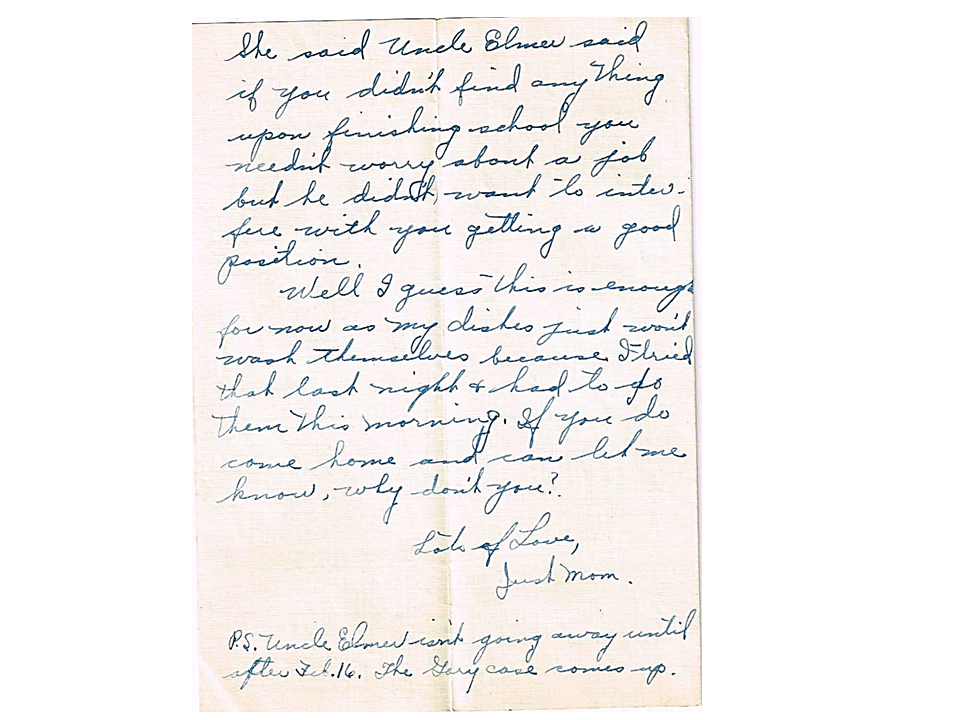 She said Uncle Elmer said
if you didn't find anything
upon finishing school you
needn't worry about a job
but he didn't want to inter-
fere with you getting a good
position.
Well I guess this is enough
for now as my dishes just won't
wash themselves because I tried
that last night & had to do
them this morning. If you do
come home and can let me
know, why don't you?
Lots of Love,
Just Mom.
P.S. Uncle Elmer isn't going away until
after Feb. 16. The Gary case comes up.